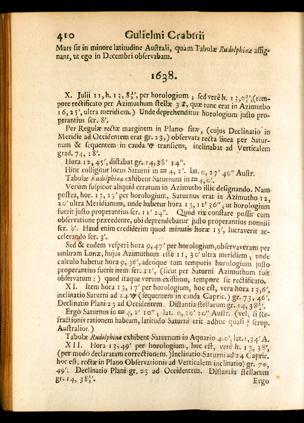 410 Gulielmi Crabtrii
Mars sit in minore latitudine Australi, quàm Tabulæ Rudolphinæ assig-
nant, ut ego in Decembri observabam.
1638.
X. Julii 11, h. 13, per horologium; sed verè h. 13, (tem-
pore rectificato per Azimuthum stellæ quæ tunc erat in Azimutho
16, 25', ultra meridiem.) Unde deprehenditur horologium justo pro-
perantius fer. 8'.
Per Regulæ rectæ marginem in Plano sitæ, (cujus Declinatio in
Meridie ad Occidentem erat gr. 23,) observata recta linea per Satur-
num & sequentem in cauda transiens, inclinabat ad Verticalem
grad. 74, 28'.
Hora 12, 45', distabat gr. 14, 38' 14".
Hinc colligitur locus Saturni in lat. 0, 27' 40" Austr.
Tabulæ Rudolphinæ exhibent Saturnum in
Verùm suspicor aliquid erratum in Azimutho illic designando. Nam
postea, hor. 13, 23' per horologium, Saturnus erat in Azimutho 12,
20' ultra Meridianum, unde habetur hora 13, 11' 36", ut horologium
fuerit justo properantius fer. 11' 24". Quod vix constare possit cum
observatione præcedente, ubi deprehendebatur justo properantius nonnisi
fer. 8'. Haud enim crediderim quod minutis horæ 15', lucraverit ac-
celerando fer. 3'.
Sed & eodem vesperi hora 9, 47' per horologium, observaveram per
umbram Lunæ, hujus Azimuthum esse 11, 30' ultra meridiem, unde
calculo habetur hora 9, 36', adeoque tum temporis horologium justo
properantius fuerit item fer. 11', (sicut per Saturni Azimuthum fuit
observatum:) quod itaque verum existimo, tempore sic rectificato.
XI. Item hora 13, 17' per horologium, hoc est, vera hora 13, 6',
inclinatio Saturni ad (& sequentem in cauda Capric.) gr. 73, 46'.
Declinatio Plani 23 ad Occidentem. Distantia stellarum gr. 14,
Ergo Saturnus in lat. 0, Austr. (vel, si Re-
fractionis rationem habeam, latitudo Saturni erit adhuc quasi scrup.
Australior.)
Tabulæ Rudolphinæ exhibent Saturnum in Aquario 4.0', lat. 1, 34' A.
XII. Hora 13, 49' per horologium, hoc est, verè h. 13, 38',
(per modo declaratam correctionem.) Inclinatio Saturni ad Capric.
hoc est, rectæ in Plano Observationis ad Verticalem inclinatio) gr. 70,
49'. Declinatio Plani gr. 23 ad Occidentem. Distantia stellarum
gr. 14,
Ergo